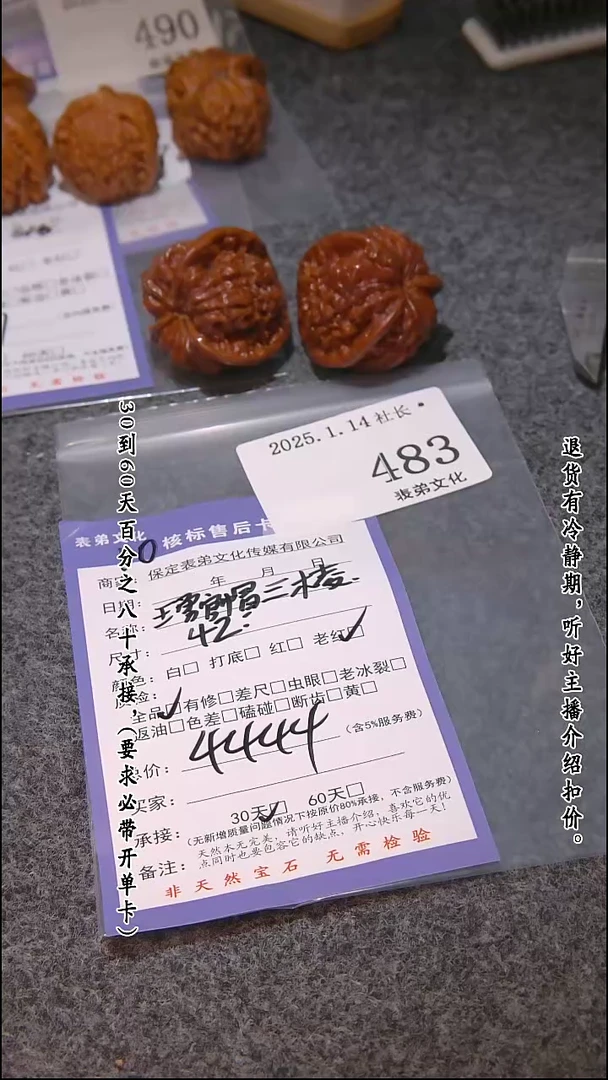 490
2025.1.14 社长
483
表弟文化
表弟文化 核标售后卡
保定表弟文化传媒有限公司
日期: 年 月 日
名称:
三棱
尺寸: 42.
颜色: 白□ 打底□ 红□ 老红□
质检:
全品□有修□差尺□虫眼□老冰裂□
返油□色差□磕碰□断齿□黄□
总价: 4444 (含5%服务费)
买家:
承接: 30天□ 60天□
(无新增质量问题情况下按原价80%承接,不含服务费)
备注: 天然本无完美,请听好主播介绍,喜欢它的优
点同时也要包容它的缺点,开心快乐每一天!
非天然宝石 无需检验
30到60天百分之八十承接,(要求必带开单卡)
退货有冷静期,听好主播介绍扣价。